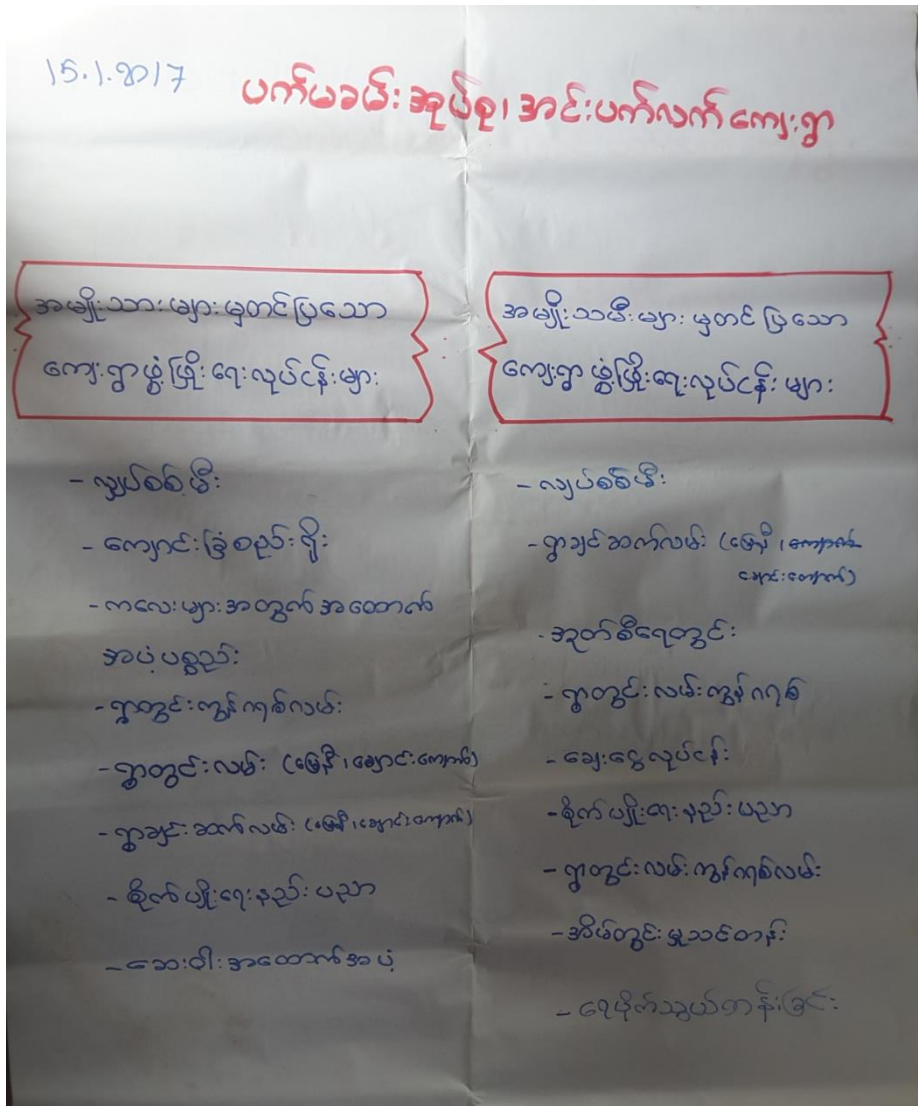 15.1.2017
ပက်မခမ်းအုပ်စု၊ အင်းပက်လက်ကျေးရွာ
အမျိုးသားများမှတင်ပြသော
ကျေးရွာဖွံ့ဖြိုးရေးလုပ်ငန်းများ
- လျှပ်စစ်မီး
- ကျောင်းခြံစည်းရိုး
- ကလေးများအတွက်အထောက်
အပံ့ပစ္စည်း
- ရွာတွင်းကွန်ကရစ်လမ်း
- ရွာတွင်းလမ်း (မြေနီ၊ချောင်းကျောက်)
- ရွာချင်းဆက်လမ်း (မြေနီ၊ချောင်းကျောက်)
- စိုက်ပျိုးရေးနည်းပညာ
- ဆေးဝါးအထောက်အပံ့
အမျိုးသမီးများမှတင်ပြသော
ကျေးရွာဖွံ့ဖြိုးရေးလုပ်ငန်းများ
- လျှပ်စစ်မီး
- ရွာချင်ဆက်လမ်း (မြေနီ၊
ချောင်းကျောက်)
- အုတ်စီရေတွင်း
- ရွာတွင်းလမ်းကွန်ကရစ်
- ချေးငွေလုပ်ငန်း
- စိုက်ပျိုးရေးနည်းပညာ
- ရွာတွင်းလမ်းကွန်ကရစ်လမ်း
- အိမ်တွင်းမှုသင်တန်း
- ရေပိုက်သွယ်တန်းခြင်း